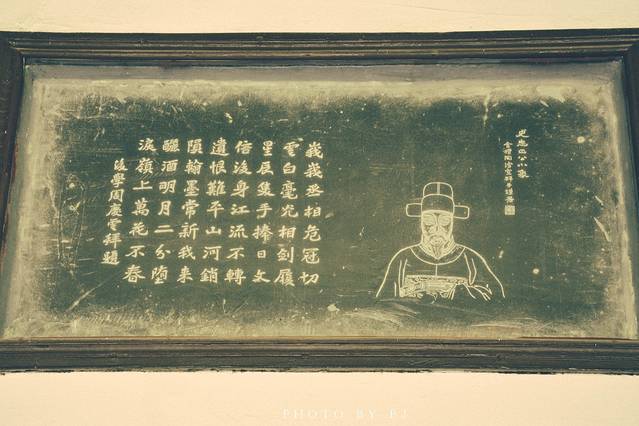 史忠正公小象
會稽陶濬宣拜手謹摹
峩峩丞相危冠切
雲白毫光相劍履
星辰隻手捧日文
信後身江流不轉
遺恨難平山河銷
隕翰墨常新我來
釃酒明月二分墮
淚嶺上萬花不春
後學周慶雲拜題
PHOTO BY PJ